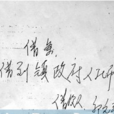 借条
借到镇政府人民币
借款人